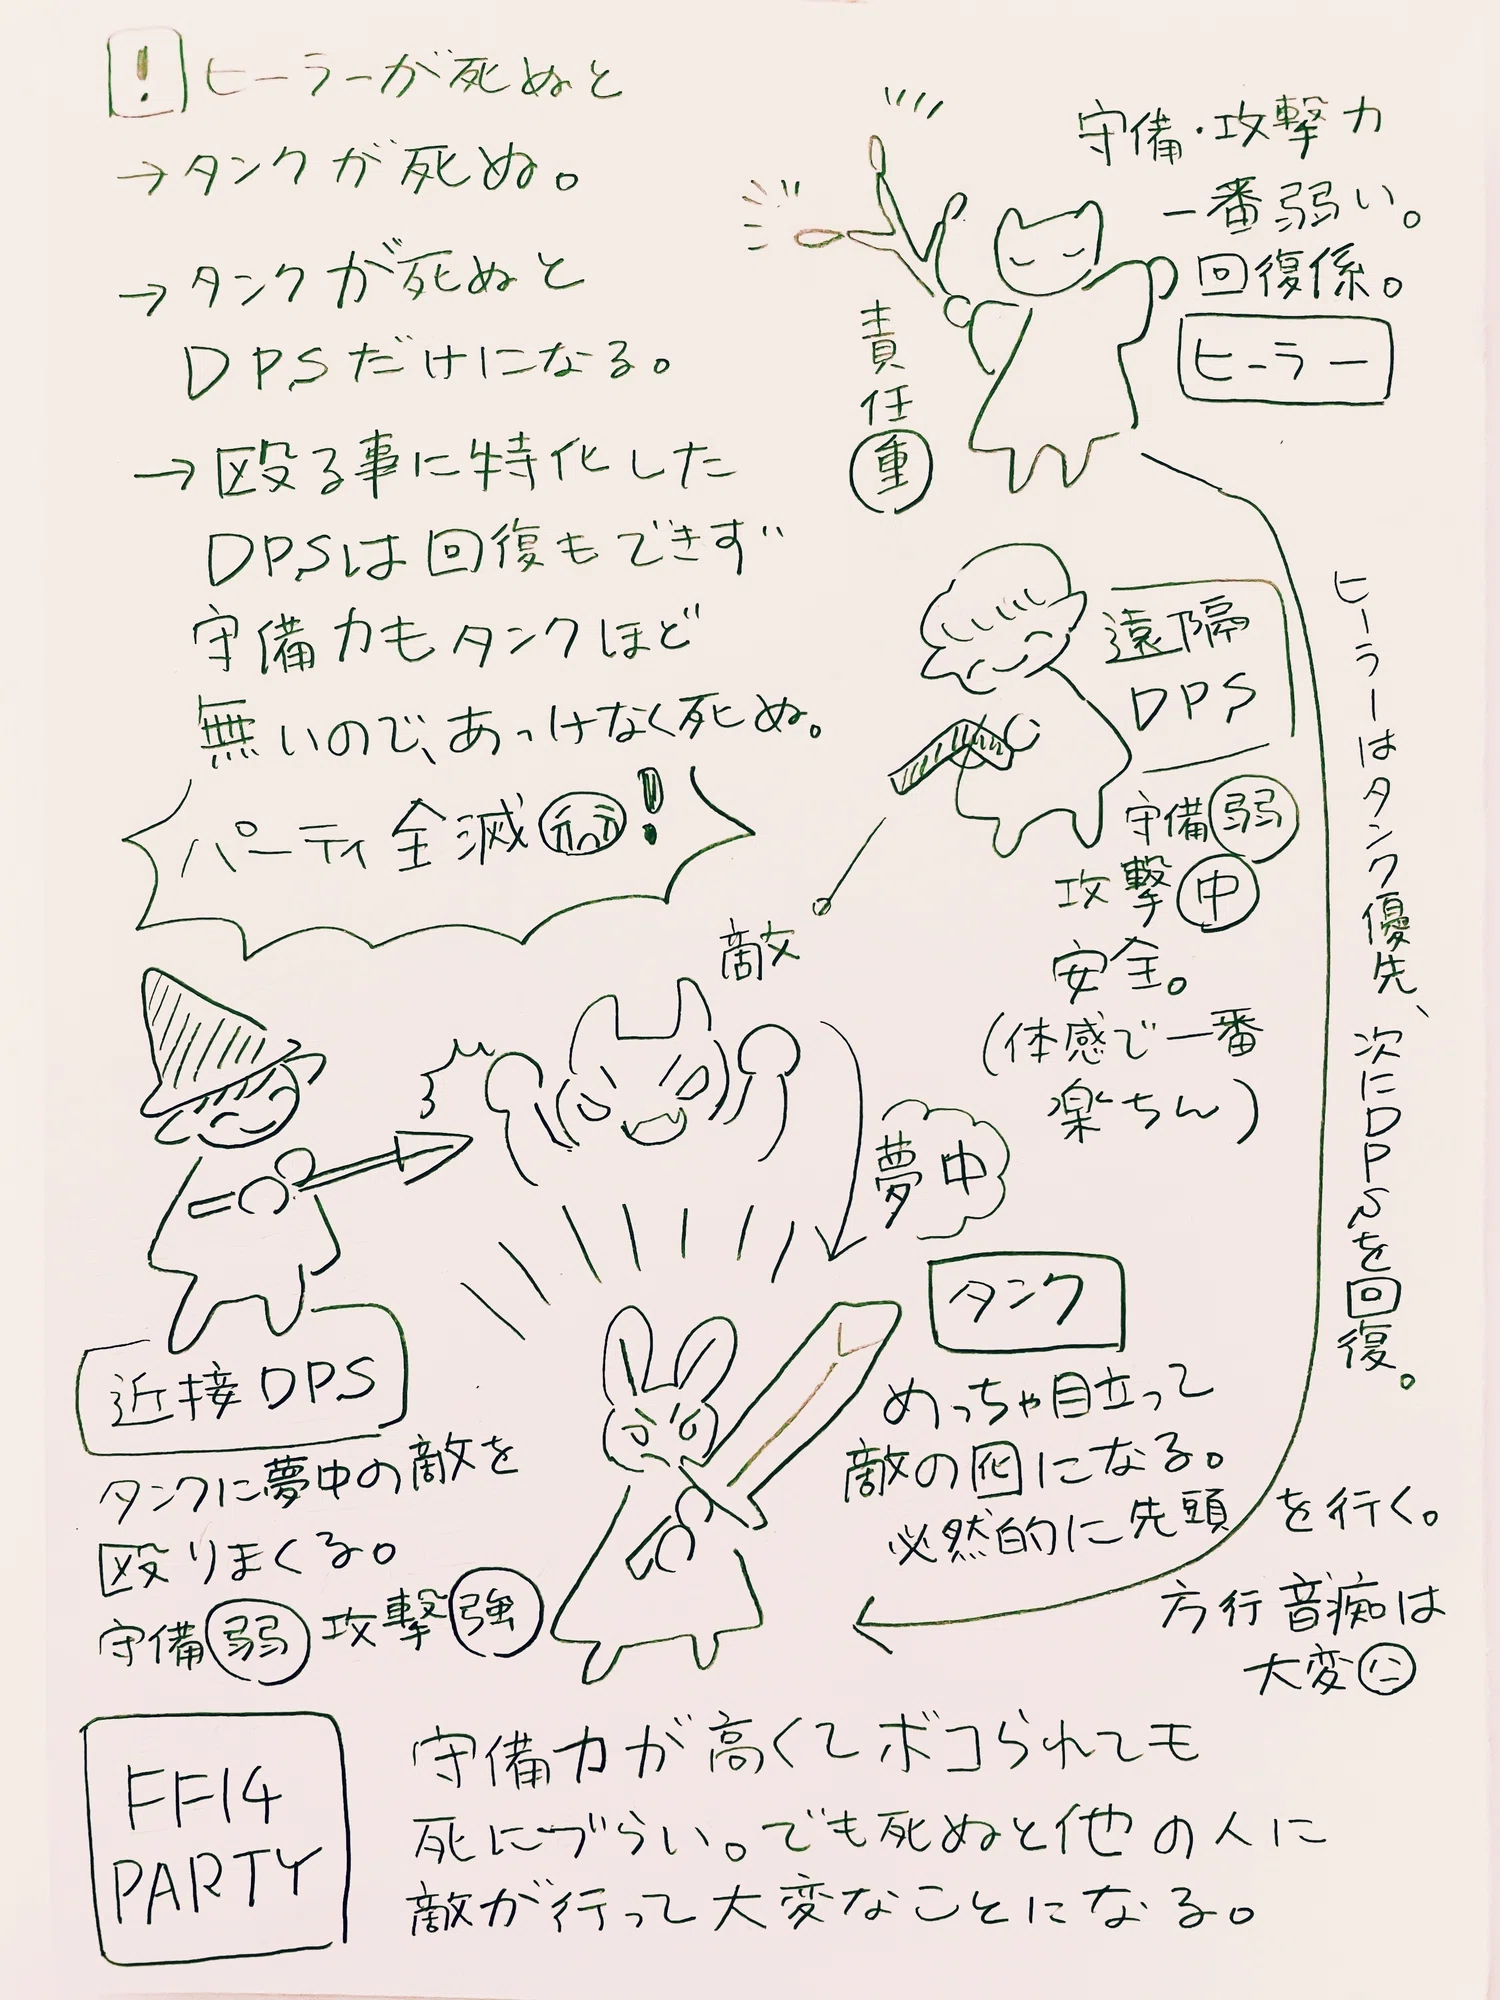 ! ヒーラーが死ぬと
→タンクが死ぬ。
→タンクが死ぬと
DPSだけになる。
→殴る事に特化した
DPSは回復もできず
守備力もタンクほど
無いので、あっけなく死ぬ。
パーティ全滅!
守備・攻撃力
一番弱い。
回復係。
ヒーラー
責任重
遠隔
DPS
守備弱
攻撃中
安全。
(体感で一番
楽ちん)
ヒーラーはタンク優先、
次にDPSを回復。
敵
夢中
近接DPS
タンクに夢中の敵を
殴りまくる。
守備弱 攻撃強
タンク
めっちゃ目立って
敵の囮になる。
必然的に先頭を行く。
方行音痴は
大変
守備力が高くてボコられても
死にづらい。でも死ぬと他の人に
敵が行って大変なことになる。
FF14
PARTY